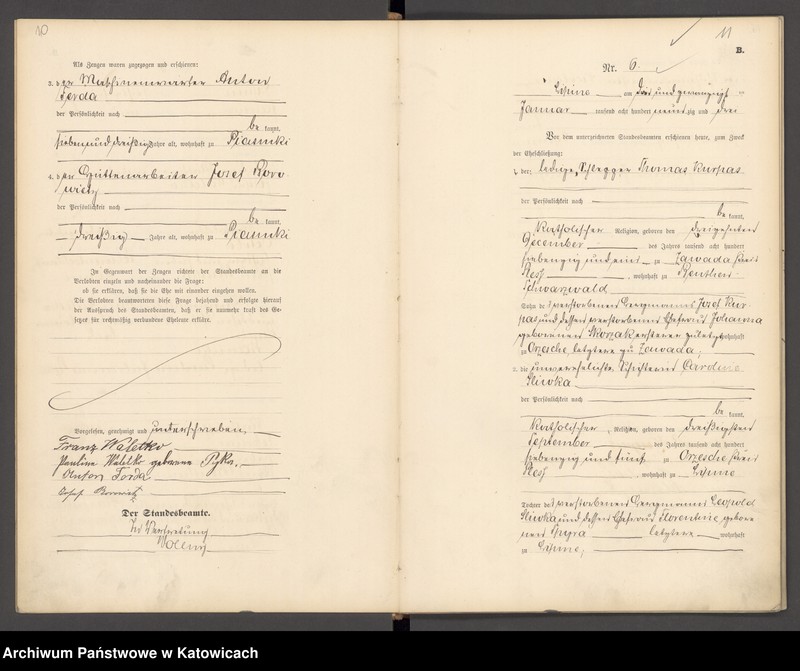 10
Als Zeugen waren zugezogen und erschienen:
3. der Maschinenwärter Anton
Torda
der Persönlichkeit nach
be kannt,
sieben und dreißig Jahre alt, wohnhaft zu Piasniki
4. der Hüttenarbeiter Josef Boro
wietz
der Persönlichkeit nach
be kannt,
dreißig Jahre alt, wohnhaft zu Piasniki
In Gegenwart der Zeugen richtete der Standesbeamte an die
Verlobten einzeln und nacheinander die Frage:
ob sie erklären, daß sie die Ehe mit einander eingehen wollen.
Die Verlobten beantworteten diese Frage bejahend und erfolgte hierauf
der Ausspruch des Standesbeamten, daß er sie nunmehr kraft des Ge-
setzes für rechtmäßig verbundene Eheleute erkläre.
Vorgelesen, genehmigt und unterschrieben
Franz Waletko
Pauline Waletko geborene Pyka.
Anton Torda
Josef Borowietz
Der Standesbeamte.
In Vertretung
11
B.
Nr. 6.
Lipine am drei und zwanzigsten
Januar tausend acht hundert neunzig und drei
Vor dem unterzeichneten Standesbeamten erschienen heute, zum Zweck
der Eheschließung:
1. der ledige Schlepper Thomas Kurpas
der Persönlichkeit nach
be kannt,
katholischer Religion, geboren den dreizehnten
December des Jahres tausend acht hundert
siebenzig und eins zu Zawada Kreis
Pless, wohnhaft zu Beuthen-
Schwarzwald
Sohn des verstorbenen Bergmanns Josef Kur-
pas und dessen verstorbenen Ehefrau Johanna
geborenen Skorzak ersterer zuletzt wohnhaft
zu Orzesche, letztere zu Zawada,
2. die unverehelichte Caroline
Sliwka
der Persönlichkeit nach
be kannt,
katholischer Religion, geboren den dreißigsten
September des Jahres tausend acht hundert
siebenzig und fünf zu Orzesche Kreis
Pless, wohnhaft zu Lipine
Tochter des verstorbenen Bergmanns Leopold
Sliwka und dessen Ehefrau Florentine, gebore
nen letztere wohnhaft
zu Lipine,
Archiwum Państwowe w Katowicach